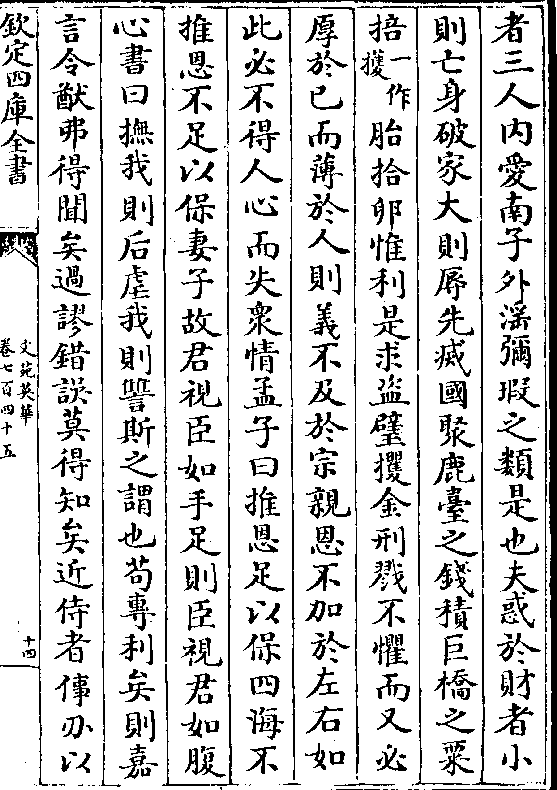 者三人内愛南子外滛彌瑕之類是也夫惑於財者小
則亡身破家大則辱先滅國聚鹿臺之錢積巨橋之粟
掊一作攫胎拾卵惟利是求盗璧攫金刑戮不懼而又必
厚於已而薄於人則義不及於宗親恩不加於左右如
此必不得人心而失衆情孟子曰推恩足以保四海不
推恩不足以保妻子故君視臣如手足則臣視君如腹
心書曰撫我則后虐我則讐斯之謂也茍專利矣則嘉
言令猷弗得聞矣過謬錯誤莫得知矣近侍者俥刅以
欽定四庫全書
文苑英華
卷七百四十五
十四